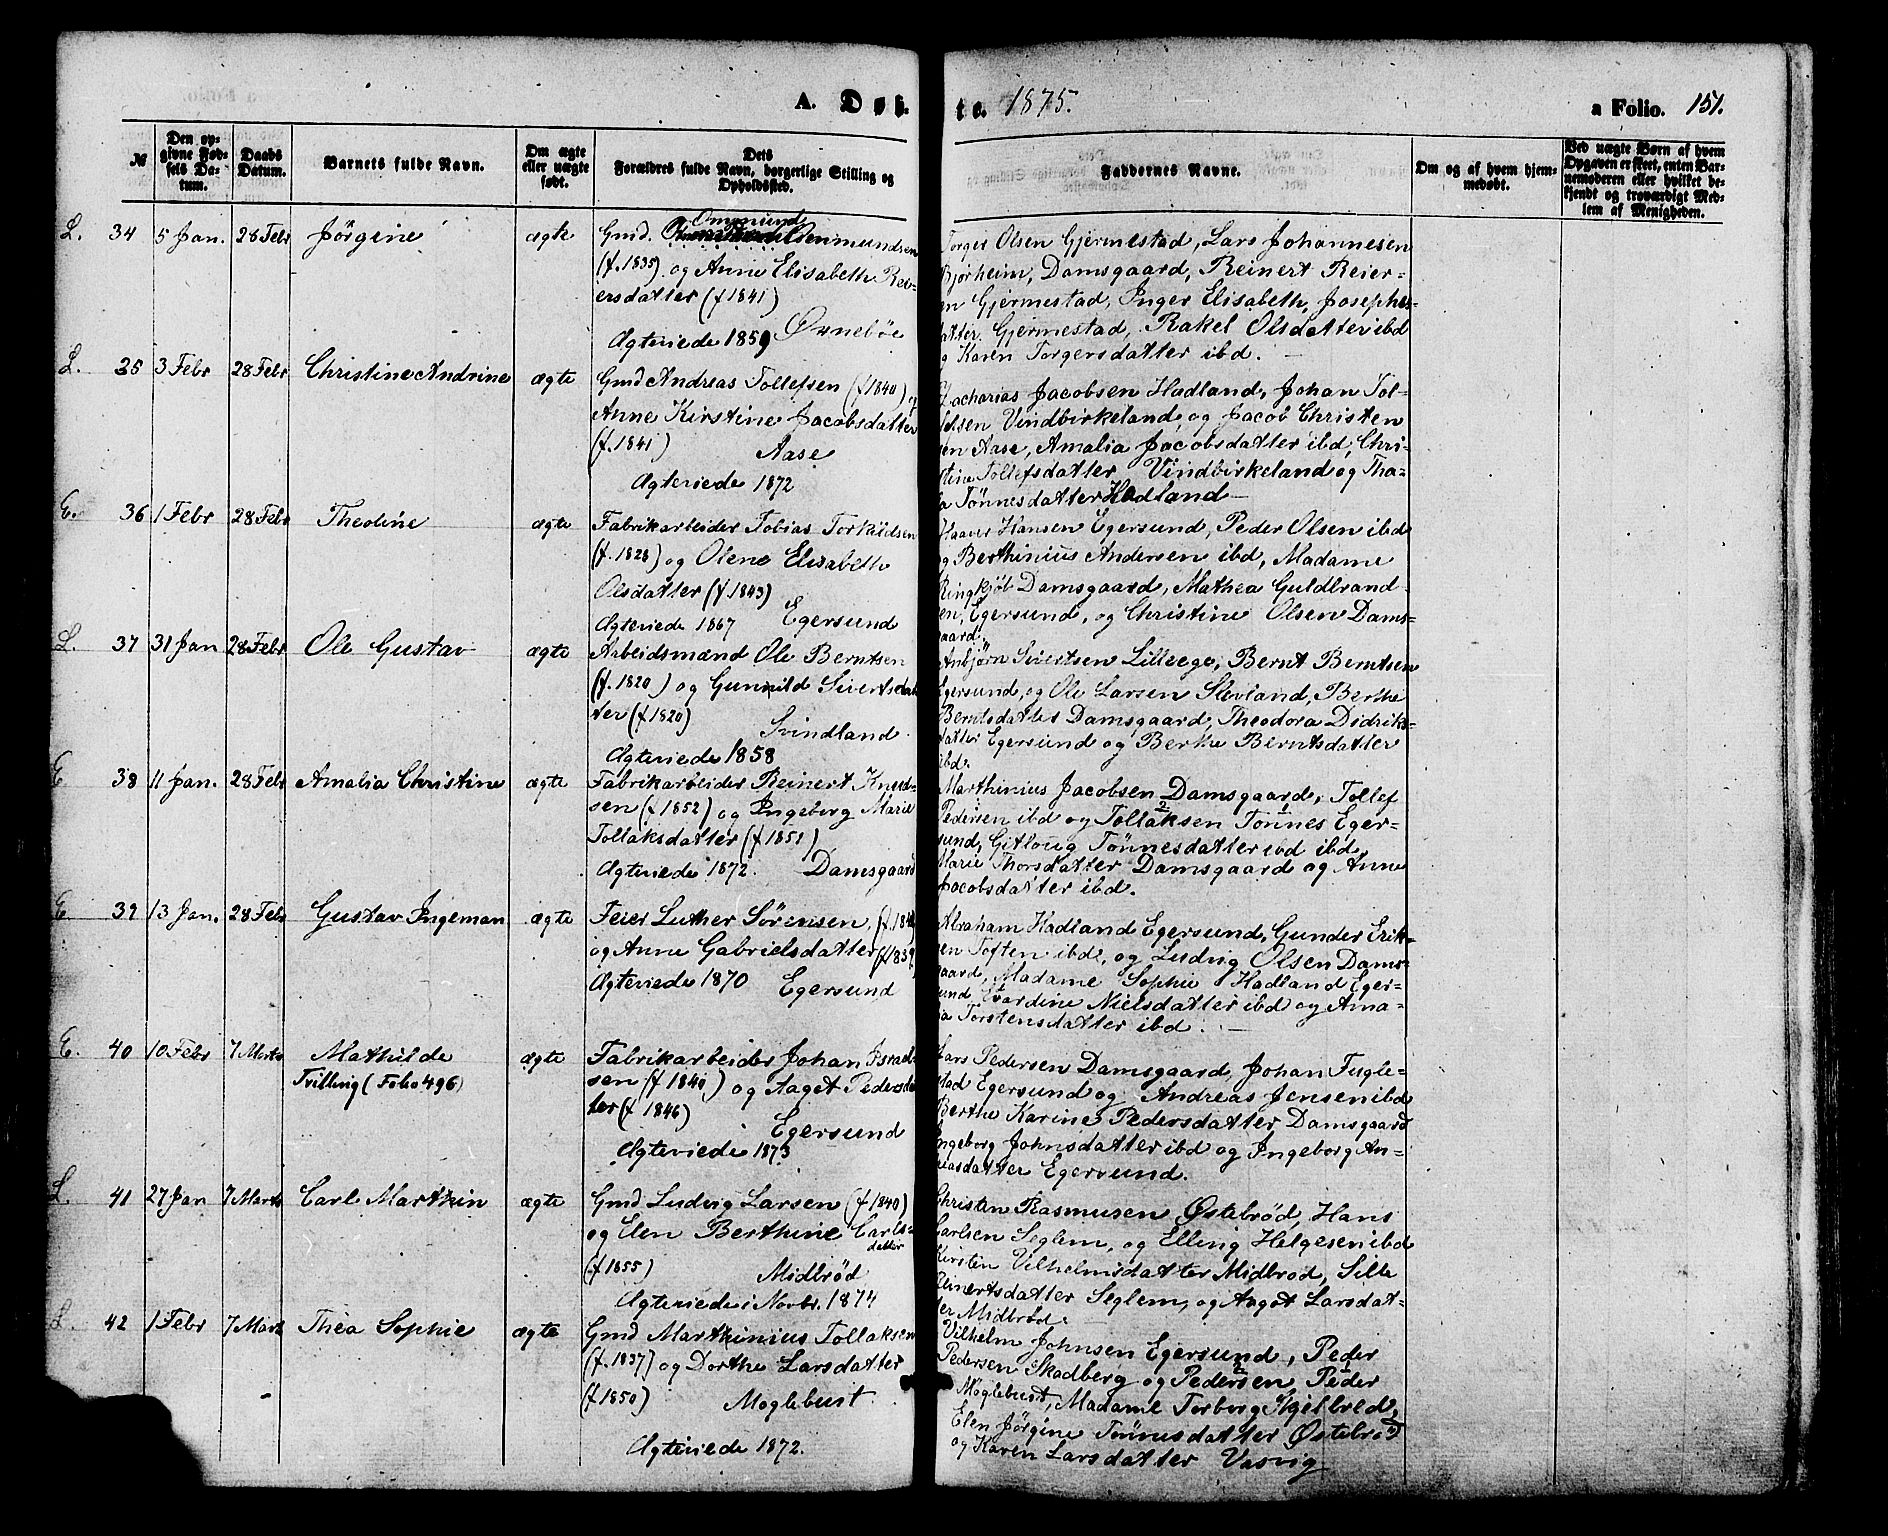 A. Døb-
te. 1875.
a Folio. 151.
№
Den op-
givne Fød-
sels Da-
tum.
Daabs
Datum.
Barnets fulde Navn.
Om ægte
eller uægte
født.
Dets
Forældres fulde Navn, borgerlige Stilling og
Opholdssted.
Faddernes Navne.
Om og af hvem hjem-
medøbt.
Ved uægte Børn af hvem
Opgaven er skeet, enten Bar-
nemoderen eller hvilket be-
kjendt og troværdigt Med-
lem af Menigheden.
L. 34 5 Jan. 28 Febr Jörgine ægte
Ommund
Gmd. Ommundsen
(f. 1835) og Anne Elisabeth Rei-
ersdatter (f 1841)
Ørnebøe
Ægteviede 1859
Torger Olsen Gjermestad, Lars Johannesen
Bjørheim, Damsgaard, Reinert Reier-
en Gjermestad, Inger Elisabeth, Josephs-
datter Gjermestad, Rakel Olsdatter ibd
og Karen Torgersdatter ibd. —
L. 35 3 Febr 28 Febr Christine Andrine ægte
Gmd Andreas Tollefsen (f 1840) og
Anne Kirstine Jacobsdatter
(f. 1841) Aase
Ægteviede 1872
Zacharias Jacobsen Hadland, Johan Tol-
lefsen Vindbirkeland, og Jacob Christen
sen Aase, Amalia Jacobsdatter ibd, Chri-
stine Tollefsdatter Vindbirkeland og Tha-
lea Tönnesdatter Hadland —
E. 36 1 Febr 28 Febr Theoline ægte
Fabrikarbeider Tobias Torkildsen
(f. 1828) og Olene Elisabeth
Olsdatter (f. 1843)
Ægteviede 1867 Egersund
Haaver Hansen Egersund, Peder Olsen ibd
og Berthinius Andersen ibd, Madame
Ringkjöb Damsgaard, Mathea Guldbrand-
sen, Egersund, og Christine Olsen Dams-
gaard.
L. 37 31 Jan 28 Febr Ole Gustav ægte
Arbeidsmand Ole Berntsen
(f. 1820) og Gunnild Sivertsdat
ter (f 1820)
Svindland
Ægteviede 1858
Anbjørn Sivertsen Lilleege, Bernt Berntsen
Egersund, og Ole Larsen Slevland, Berthe
Berntsdatter Damsgaard, Theodora Didriks-
datter Egersund og Berthe Berntsdatter
ibd.
E 38 11 Jan. 28 Febr Amalia Christine ægte
Fabrikarbeider Reinert Knud-
sen (f 1852) og Ingeborg Marie
Tollaksdatter (f 1851)
Ægteviede 1872. Damsgaard
Marthinius Jacobsen Damsgaard, Tollef
Pedersen ibd og Tollaksen Tönnes Eger-
sund, Gitloug Tönnesdatter ibd ibd,
Marie Thorsdatter Damsgaard og Anne
Jacobsdatter ibd.
E 39 13 Jan. 28 Febr Gustav Ingeman ægte
Feier Luther Sörensen, (f. 184
og Anne Gabrielsdatter (f 1839
Ægteviede 1870 Egersund
Abraham Hadland Egersund, Gunder Erik-
sen Toften ibd, og Ludvig Olsen Dams-
gaard, Madame Sophie Hadland Eger-
sund, Evardine Nielsdatter ibd og Ama-
lia Torstensdatter ibd. —
E. 40 10 Febr 7 Marts Mathilde ægte
Tvilling (Folio 496)
Fabrikarbeider Johan Israel-
sen (f 1840) og Aaget Pedersdat
ter (f 1846)
Egersund
Ægteviede 1873
Lars Pedersen Damsgaard, Johan Fugle-
stad Egersund og Andreas Jensen ibd
Berthe Karine Pedersdatter Damsgaard
Ingeborg Johnsdatter ibd og Ingeborg An-
reasdatter Egersund.
L. 41 27 Jan 7 Marts Carl Marthin ægte
Gmd Ludvig Larsen (f 1840)
og Elen Berthine Carls-
datter
(f 1855) Midbröd
Ægteviede i Novbr. 1874
Christen Rasmusen Østebrød, Hans
Carlsen Seglem, og Elling Helgesen ibd
Kirsten Vilhelmsdatter Midbrød, Sille
Reinertsdatter Seglem, og Aagot Larsdat-
ter Midbrød.
L. 42 1 Febr 7 Mart Thea Sophie ægte
Gmd Marthinius Tollaksen
(f. 1837) og Dorthe Larsdatter
(f 1850) Moglebust
Ægteviede 1872.
Vilhelm Johnsen Egersund, Peder
Pedersen Skadberg og Pedersen Peder
Møglebust, Madame Torborg Skjelbred,
Elen Jørgine Tönnesdatter Østebrød
og Karen Larsdatter Vasvig